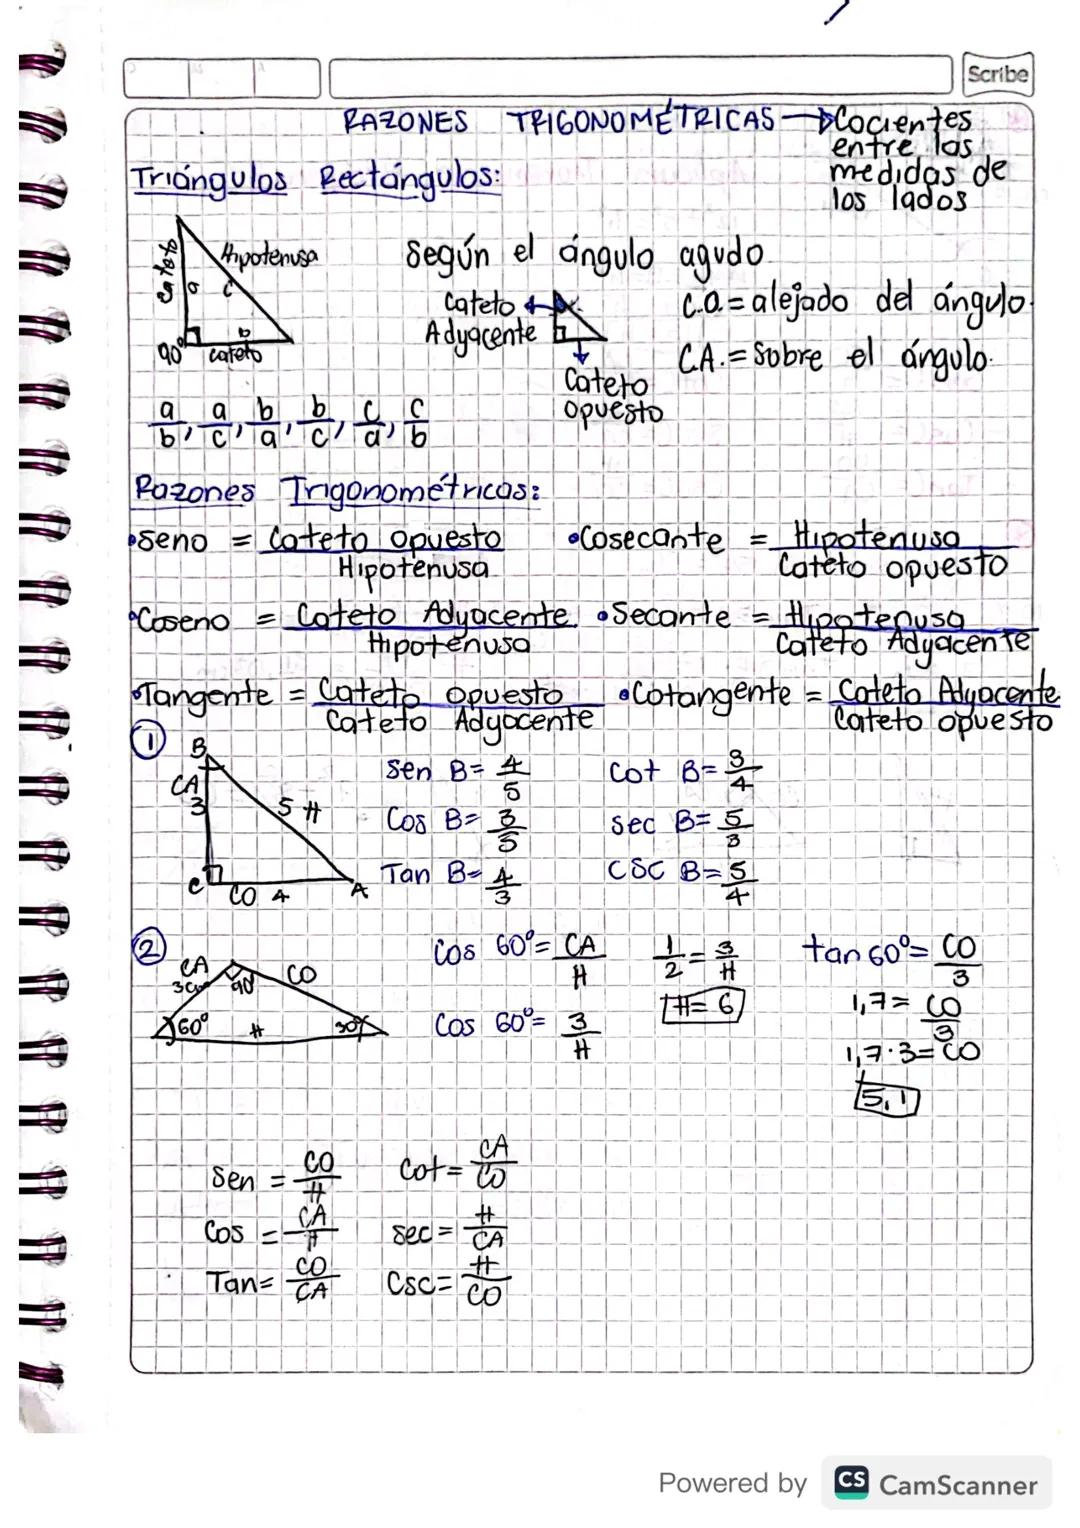 Scribe
RAZONES TRIGONOMÉTRICAS → Cocientes
entre las
medidas de
los lados
Triángulos Rectángulos:
cateto
a
Hipotenusa
c
b
90° cateto
Según el ángulo agudo
Cateto
Adyacente
Cateto
opuesto
C.O. = alejado del ángulo.
C.A. = Sobre el ángulo.
a/b, a/c, b/a, b/c, c/a, c/b
Razones Trigonométricas:
•Seno = Cateto opuesto / Hipotenusa
•Cosecante = Hipotenusa / Cateto opuesto
•Coseno = Cateto Adyacente / Hipotenusa
•Secante = Hipotenusa / Cateto Adyacente
•Tangente = Cateto opuesto / Cateto Adyacente
•Cotangente = Cateto Adyacente / Cateto opuesto
1
B
CA
3
5 H
C
CO 4
A
Sen B= 4/5
Cot B= 3/4
Cos B= 3/5
sec B= 5/3
Tan B= 4/3
CSC B= 5/4
2
CA
3cm
90
CO
60°
H
30°
Cos 60°= CA/H
1/2 = 3/H
tan 60°= CO/3
Cos 60°= 3/H
H= 6
1,7= CO/3
1,7·3= CO
5,1
Sen = CO/H
Cot= CA/CO
Cos = CA/H
sec= H/CA
Tan= CO/CA
Csc= H/CO
Powered by CS CamScanner